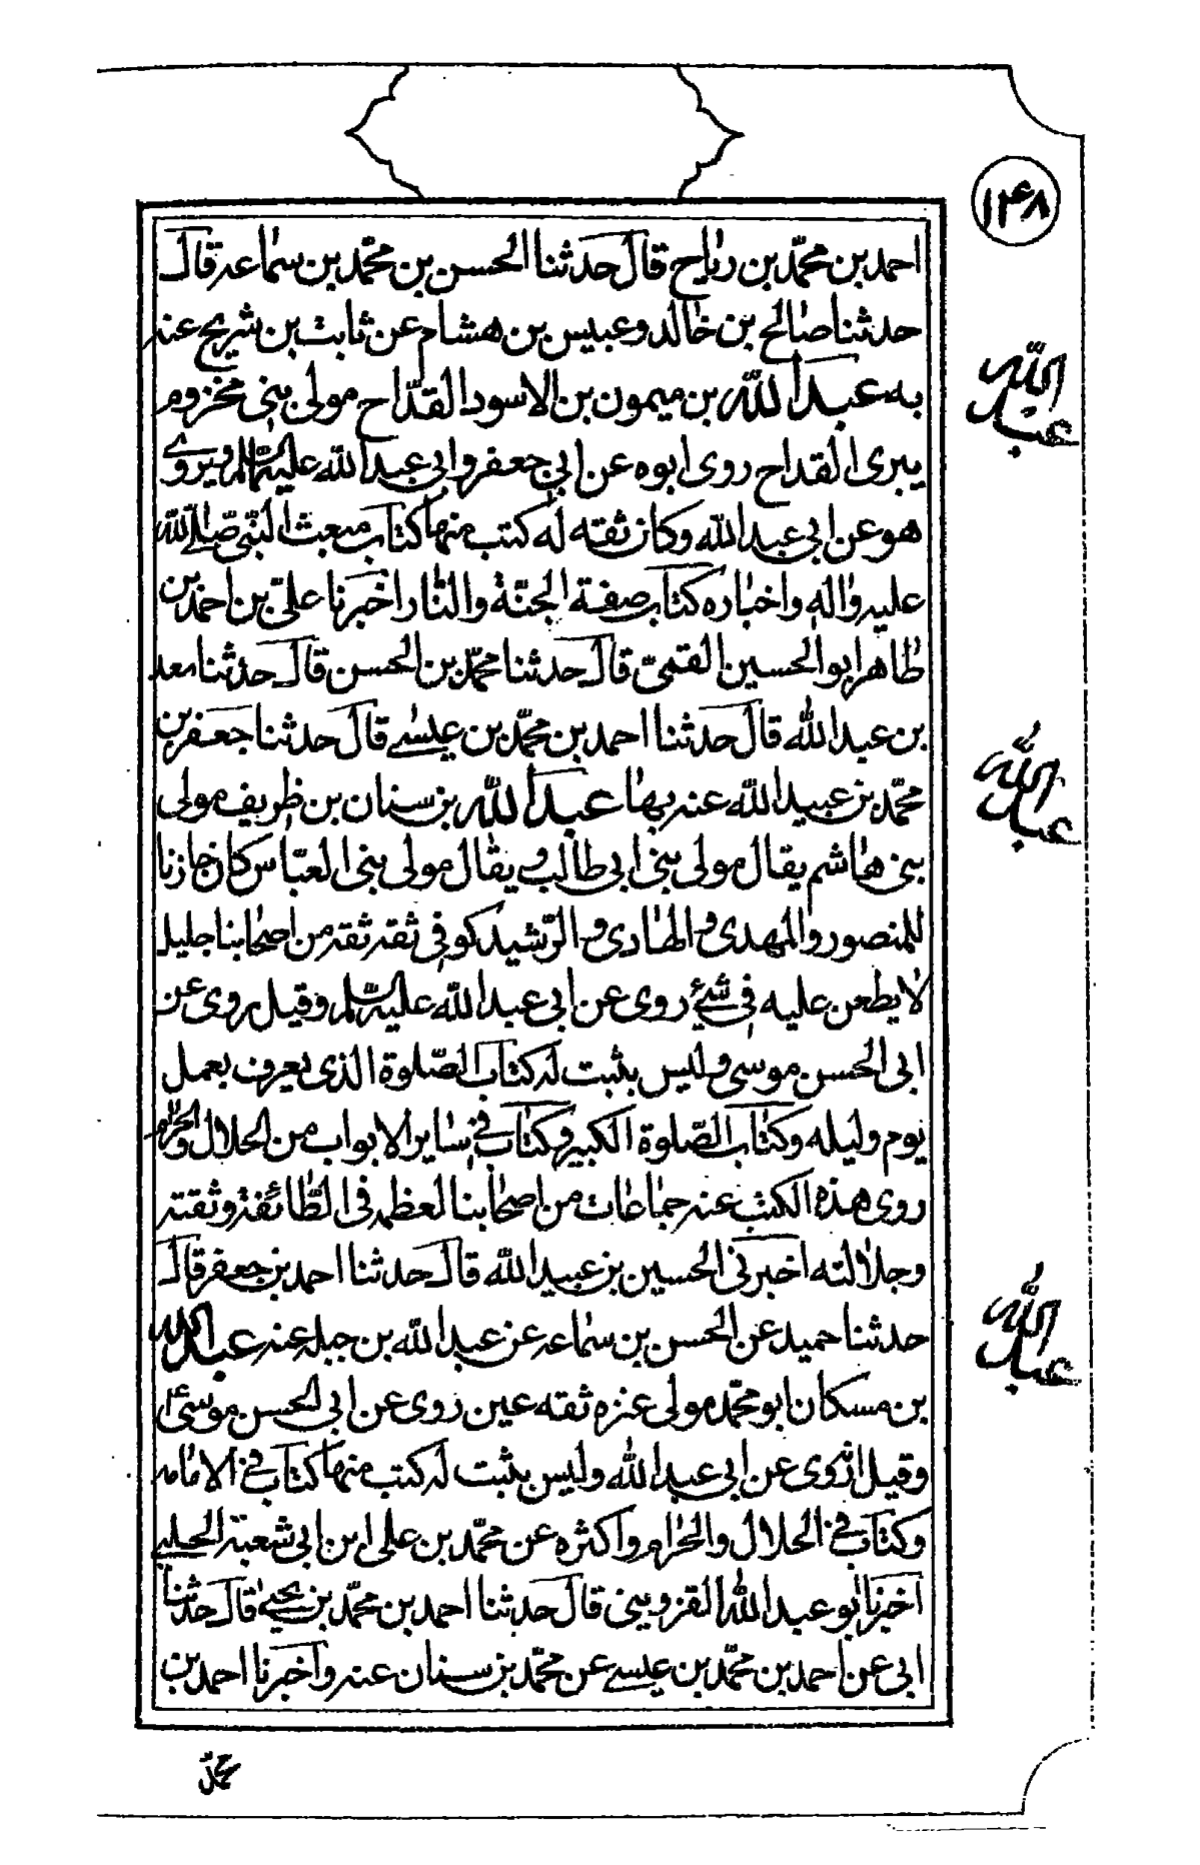 ١٤٨
احمد بن محمّد بن رباح قال حدثنا الحسن بن محمّد بن سماعه قال
حدثنا صالح بن خالد وعبيس بن هشام عن ثابت بن شريح عنه
به عبد الله بن ميمون بن الاسود القدّاح مولى بنى مخزوم
يبرى القداح روى ابوه عن ابي جعفر وابي عبد الله عليهما السلم ويروى
هو عن ابي عبد الله وكان ثقه له كتب منها كتاب مبعث النبّى صلى الله
عليه واله واخباره كتاب صفة الجنّة والنّار اخبرنا علىّ بن احمد بن
طاهر ابو الحسين القمىّ قال حدثنا محمّد بن الحسن قال حدثنا سعد
بن عبد الله قال حدثنا احمد بن محمّد بن عيسى قال حدثنا جعفر بن
محمّد بن عبيد الله عنه بها عبد الله بن سنان بن ظريف مولى
بنى هاشم يقال مولى بنى ابى طالب ويقال مولى بنى العبّاس كان خازنا
للمنصور والمهدى والهادى والرّشيد كوفى ثقه ثقه من اصحابنا جليل
لا يطعن عليه فى شئ روى عن ابى عبد الله عليه السّلم وقيل روى عن
ابى الحسن موسى وليس بثبت له كتاب الصّلوة الذى يعرف بعمل
يوم وليله وكتاب الصّلوة الكبير وكتاب فى ساير الابواب من الحلال والحرام
روى هذه الكتب عنه جماعات من اصحابنا لعظمه فى الطّائفة وثقته
وجلالته اخبرنى الحسين بن عبيد الله قال حدثنا احمد بن جعفر قال
حدثنا حميد عن الحسن بن سماعه عن عبد الله بن جبله عنه عبد الله
بن مسكان ابو محمّد مولى عنزه ثقه عين روى عن ابى الحسن موسى ع
وقيل انّه روى عن ابى عبد الله وليس بثبت له كتب منها كتاب فى الامامه
وكتاب فى الحلال والحرام واكثره عن محمّد بن على ابن ابى شعبة الحلبى
اخبرنا ابو عبد الله القزوينى قال حدثنا احمد بن محمّد بن يحيى قال حدثنا
ابى عن احمد بن محمّد بن عيسى عن محمّد بن سنان عنه واخبرنا احمد بن
محمّد
عبد الله
عبد الله
عبد الله